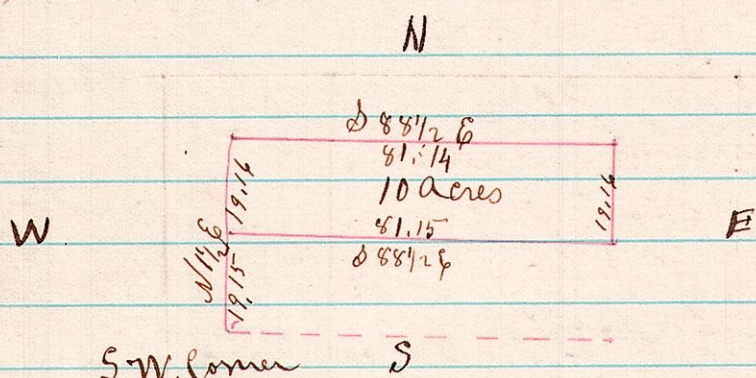 N
S 88 1/2 E
81.14
19.16
10 acres
19.16
W
E
81.15
N 1 1/2 E
S 88 1/2 E
19.15
S.W. Corner
S